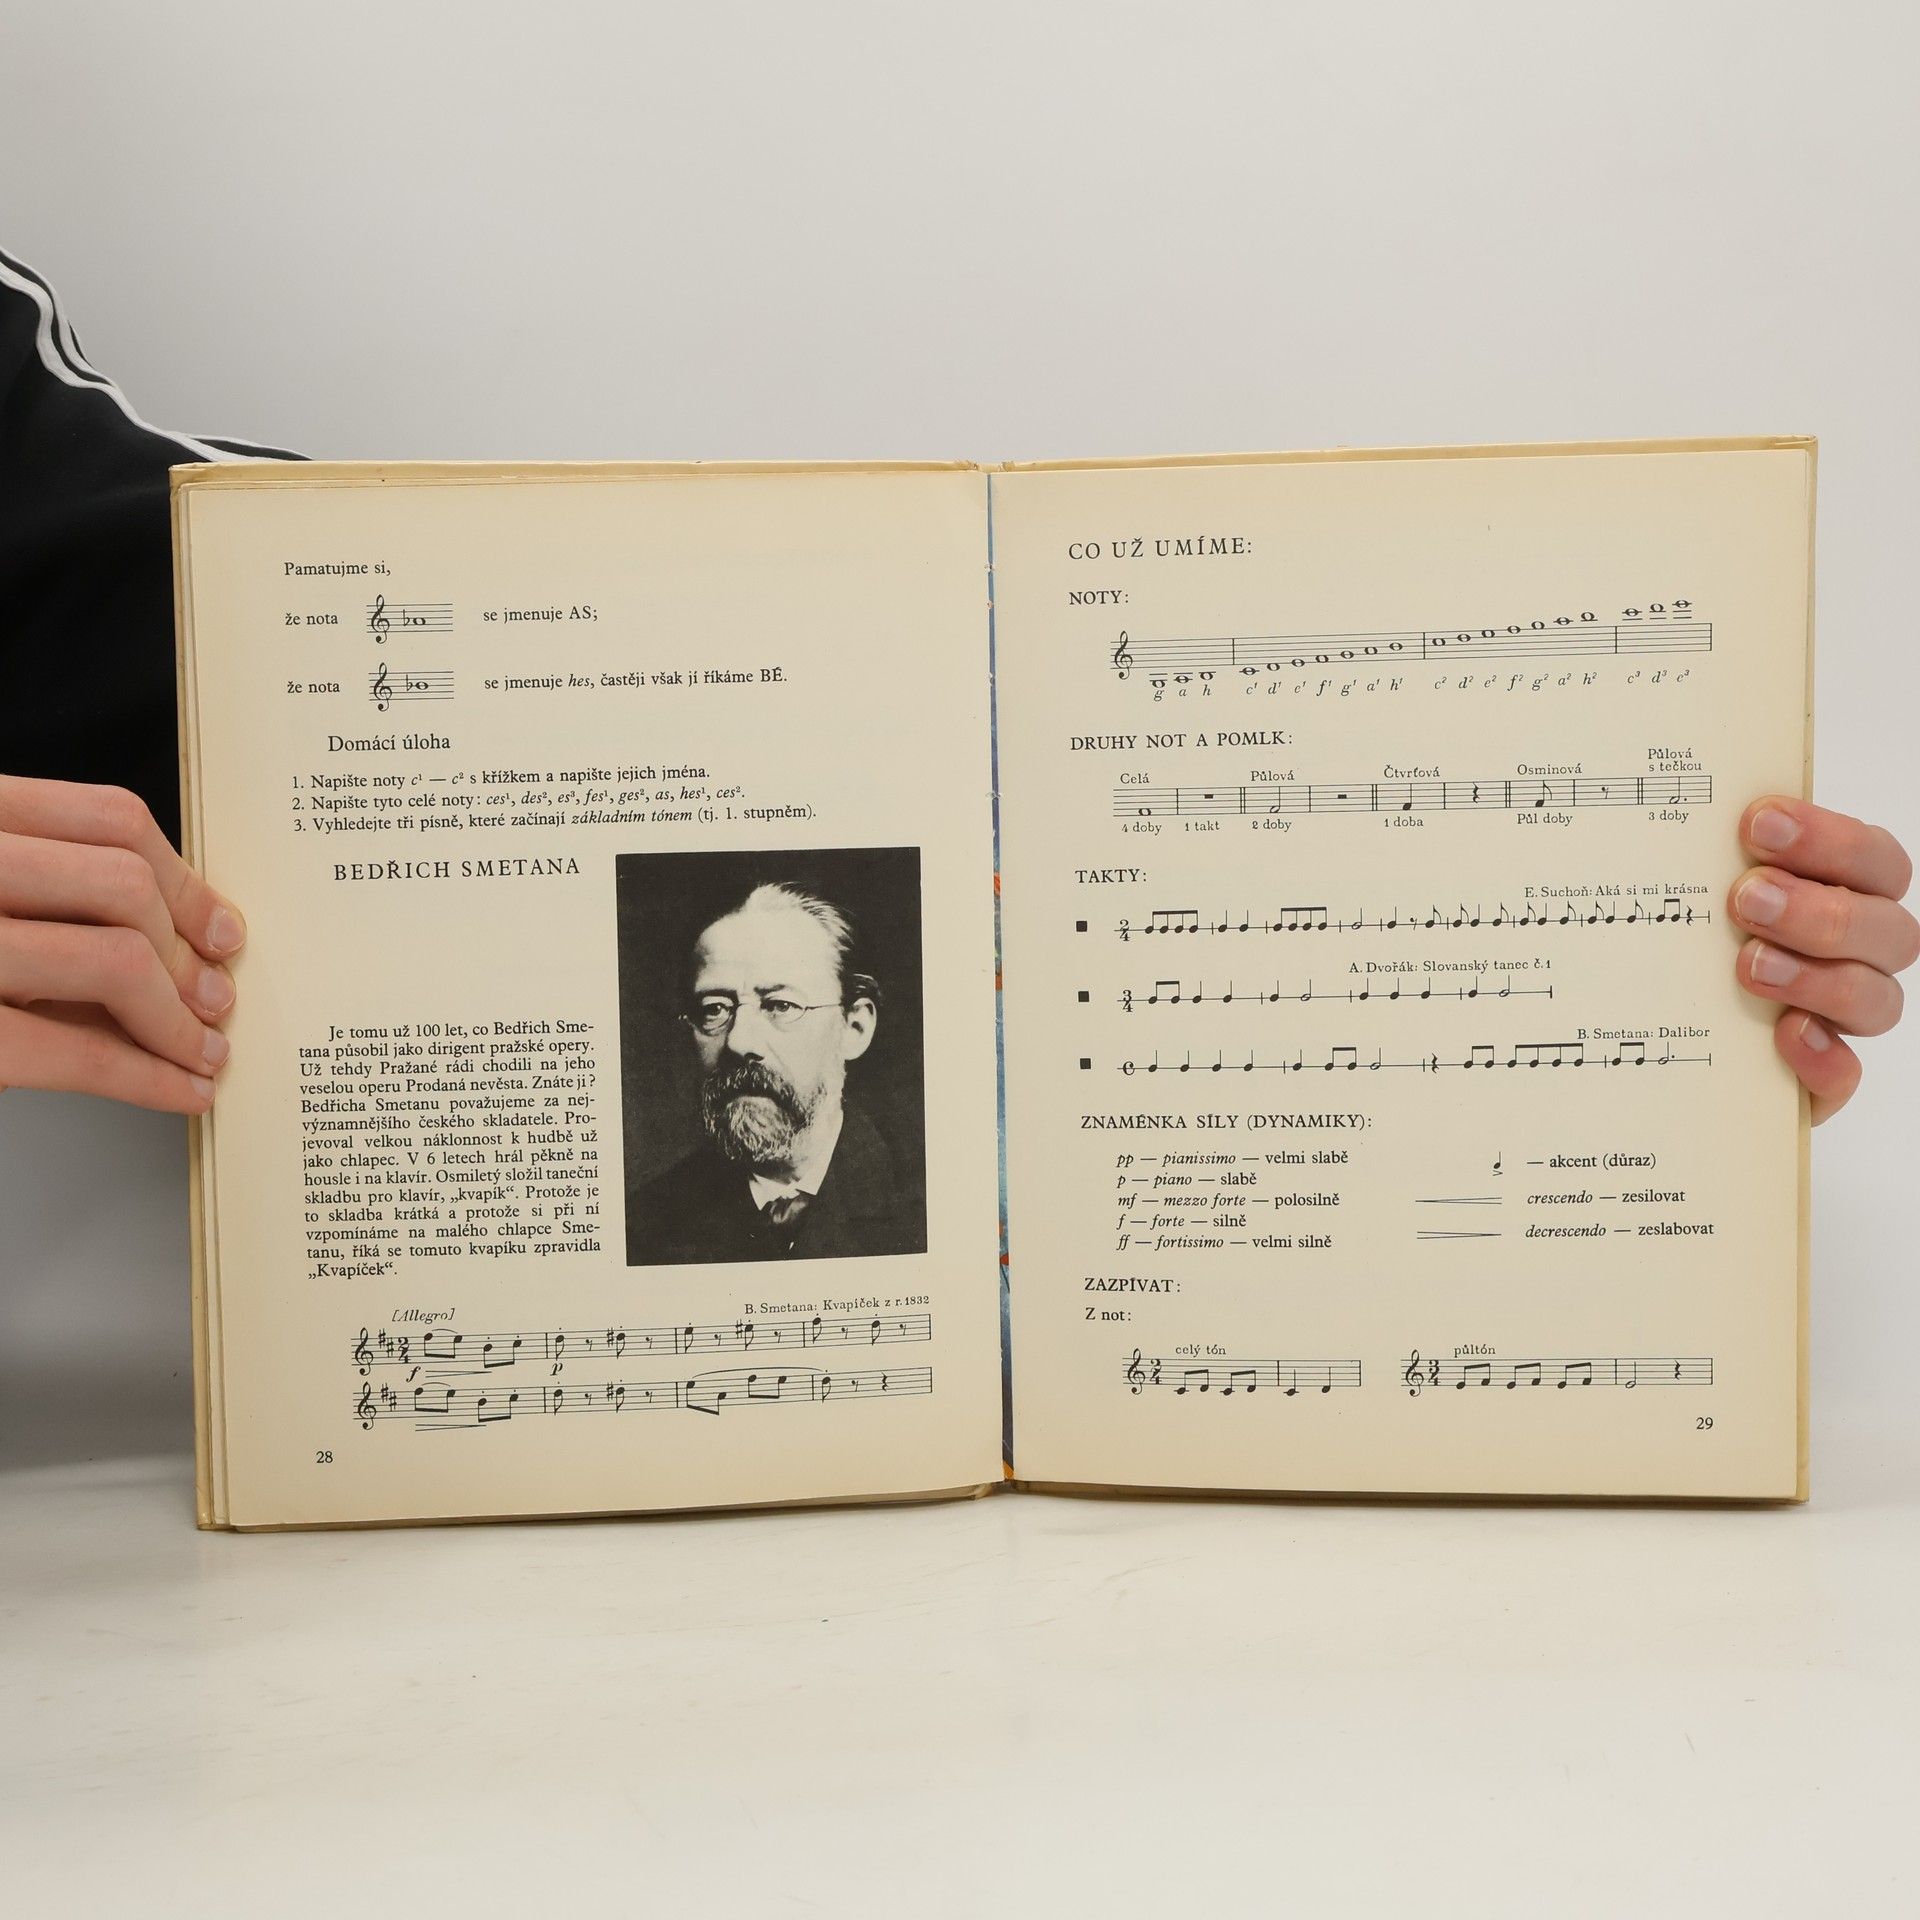 Pamatujme si,
že nota se jmenuje AS;
že nota se jmenuje hes, častěji však jí říkáme BÉ.
Domácí úloha
1. Napište noty c¹ — c² s křížkem a napište jejich jména.
2. Napište tyto celé noty: ces¹, des², es³, fes¹, ges², as, hes¹, ces².
3. Vyhledejte tři písně, které začínají základním tónem (tj. 1. stupněm).
BEDŘICH SMETANA
Je tomu už 100 let, co Bedřich Sme-
tana působil jako dirigent pražské opery.
Už tehdy Pražané rádi chodili na jeho
veselou operu Prodaná nevěsta. Znáte ji?
Bedřicha Smetanu považujeme za nej-
významnějšího českého skladatele. Pro-
jevoval velkou náklonnost k hudbě už
jako chlapec. V 6 letech hrál pěkně na
housle i na klavír. Osmiletý složil taneční
skladbu pro klavír, „kvapík“. Protože je
to skladba krátká a protože si při ní
vzpomínáme na malého chlapce Sme-
tanu, říká se tomuto kvapíku zpravidla
„Kvapíček“.
[Allegro] B. Smetana: Kvapíček z r. 1832
2/4
f p
28
CO UŽ UMÍME:
NOTY:
g a h c¹ d¹ e¹ f¹ g¹ a¹ h¹ c² d² e² f² g² a² h² c³ d³ e³
DRUHY NOT A POMLK:
Celá Půlová Čtvrťová Osminová Půlová
s tečkou
4 doby 1 takt 2 doby 1 doba Půl doby 3 doby
TAKTY:
E. Suchoň: Aká si mi krásna
2/4
A. Dvořák: Slovanský tanec č. 1
3/4
B. Smetana: Dalibor
ZNAMÉNKA SÍLY (DYNAMIKY):
pp — pianissimo — velmi slabě
p — piano — slabě
mf — mezzo forte — polosilně
f — forte — silně
ff — fortissimo — velmi silně
— akcent (důraz)
crescendo — zesilovat
decrescendo — zeslabovat
ZAZPÍVAT:
Z not:
celý tón půltón
2/4 3/4
29